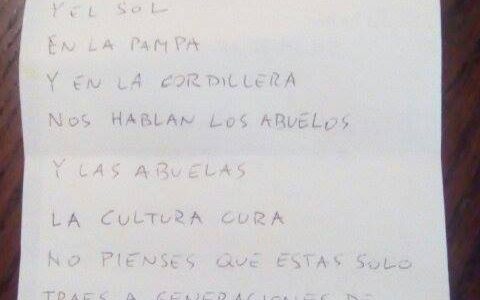 Y EL SOL
EN LA PAMPA
Y EN LA CORDILLERA
NOS HABLAN LOS ABUELOS
Y LAS ABUELAS
LA CULTURA CURA
NO PIENSES QUE ESTAS SOLO
TRAES A GENERACIONES DE